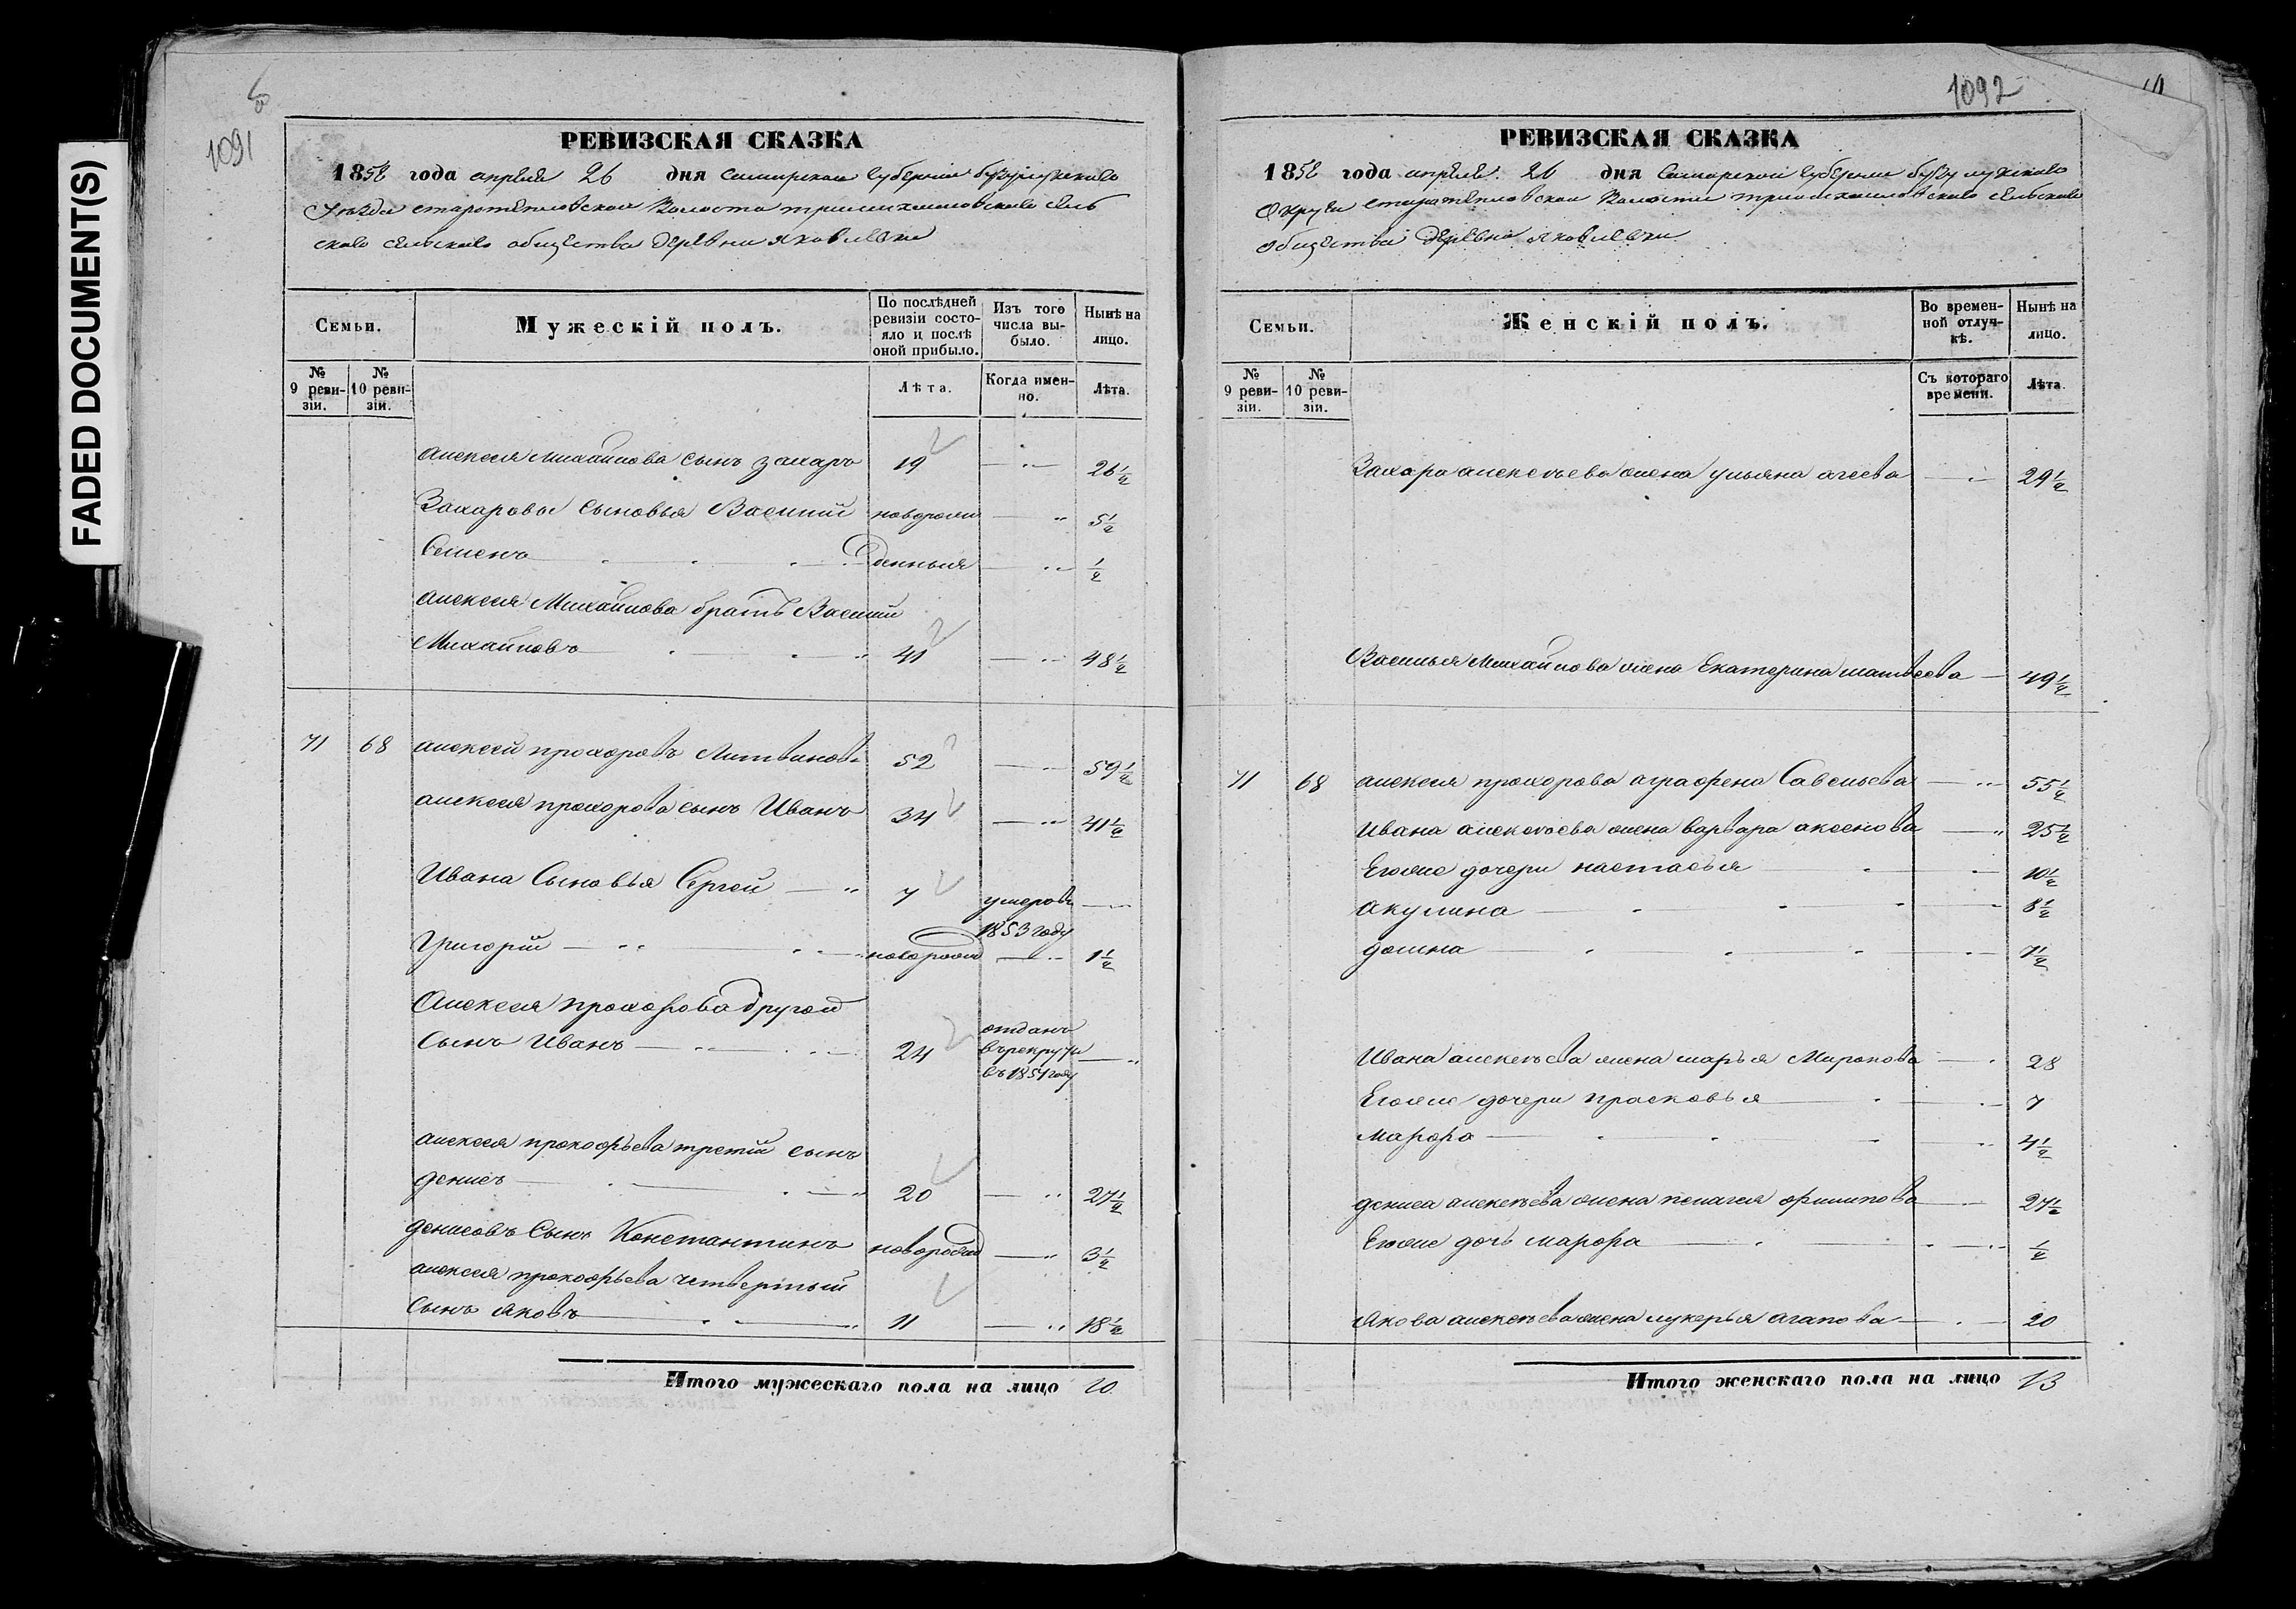 FADED DOCUMENT(S)
1091
РЕВИЗСКАЯ СКАЗКА
1858 года апреля 26 дня Самарской губернии бузулукскаго
Уезда старотепловской Волости
скаго сельскаго общества деревни яковлевки
Семьи.
Мужескій полъ.
По послѣдней ревизіи состояло и послѣ оной прибыло.
Изъ того числа выбыло.
Нынѣ на лицо.
№ 9 ревизіи.
№ 10 ревизіи.
Лѣта.
Когда именно.
Лѣта.
алексея михайлова сынъ захаръ 19 — 26 1/2
Захаровы сыновья Василий новорож — 5 1/2
Семенъ — денныя — 1/2
алексея Михайлова братъ Василий
Михайловъ — 41 — 48 1/2
71 68 алексей прохоровъ Литвиновъ 52 — 59 1/2
алексея прохорова сынъ Иванъ 34 — 41 1/2
Ивана Сыновья Сергей — 7 умеръ —
1853 году
Григорій — новорож — 1 1/2
Алексея прохорова другой
сынъ Иванъ — 24 отданъ
врекруты —
въ 1851 году
алексея прокофьева третій сынъ
денисъ — 20 — 27 1/2
денисовъ сынъ Константинъ новорожд — 3 1/2
алексея прокофьева четвертый
сынъ яковъ — 11 — 18 1/2
Итого мужескаго пола на лицо 10
1092
РЕВИЗСКАЯ СКАЗКА
1858 года апреля 26 дня Самарской губернии бузулукскаго
Округи старотепловской Волости сельскаго
общества деревни яковлевки
Семьи.
Женскій полъ.
Во временной отлучкѣ.
Нынѣ на лицо.
№ 9 ревизіи.
№ 10 ревизіи.
Съ котораго времени.
Лѣта.
Захара алексеева жена ульяна агеева — 29 1/2
Василья Михайлова жена Екатерина матвеева — 49 1/2
71 68 алексея прохорова аграфена Савельева — 55 1/2
Ивана алексеева жена варвара аксенова — 25 1/2
Егоже дочери настасья — 10 1/2
акулина — 8 1/2
домна — 7 1/2
Ивана алексеева жена марья Миронова — 28
Егоже дочери прасковья — 7
марфа — 4 1/2
дениса алексеева жена пелагея филипова — 27 1/2
Егоже дочь марфа — 1/2
Якова алексеева жена лукерья агапова — 20
Итого женскаго пола на лицо 13